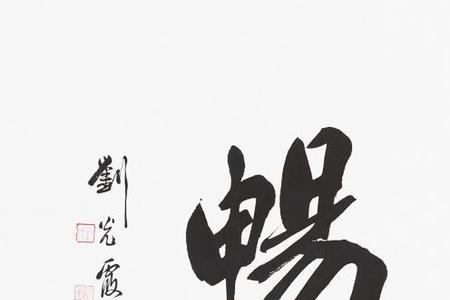 暢
劉光霞